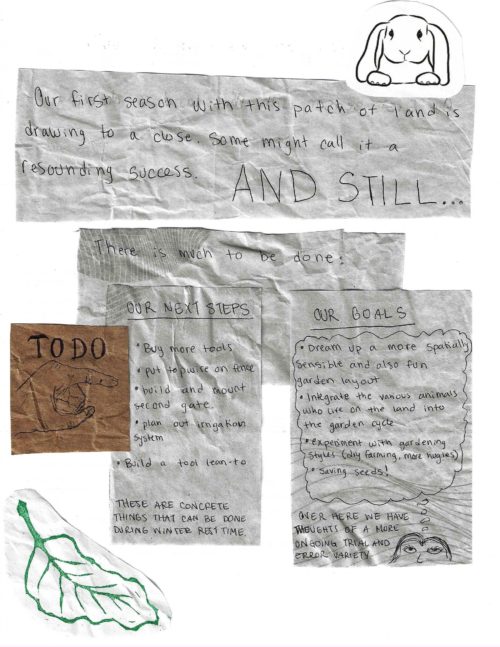 Our first season with this patch of land is
drawing to a close. Some might call it a
resounding success. AND STILL...
There is much to be done:
OUR NEXT STEPS
TO DO
• Buy more tools
• put top wire on fence
• build and mount
second gate.
• plan out irrigation
system
• Build a tool lean-to
THESE ARE CONCRETE
THINGS THAT CAN BE DONE
DURING WINTER REST TIME.
OUR GOALS
• Dream up a more spatially
sensible and also fun
garden layout
• Integrate the various animals
who life on the land into
the garden cycle
• Experiment with gardening
styles (dry farming, more hugles)
• Saving seeds!
OVER HERE WE HAVE
THOUGHTS OF A MORE
ONGOING TRIAL AND
ERROR VARIETY